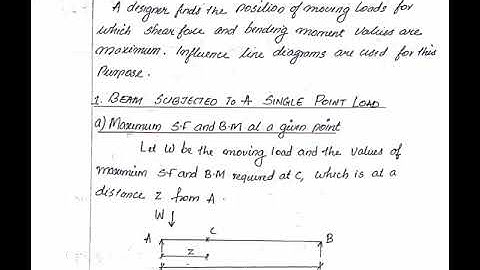 A designer finds the position of moving loads for
which shear force and bending moment values are
maximum. Influence line diagrams are used for this
Purpose.
1. BEAM SUBJECTED TO A SINGLE POINT LOAD
a) Maximum S.F and B.M at a given point
Let W be the moving load and the values of
maximum S.F and B.M required at C, which is at a
distance Z from A.
W
C
A
B
Z